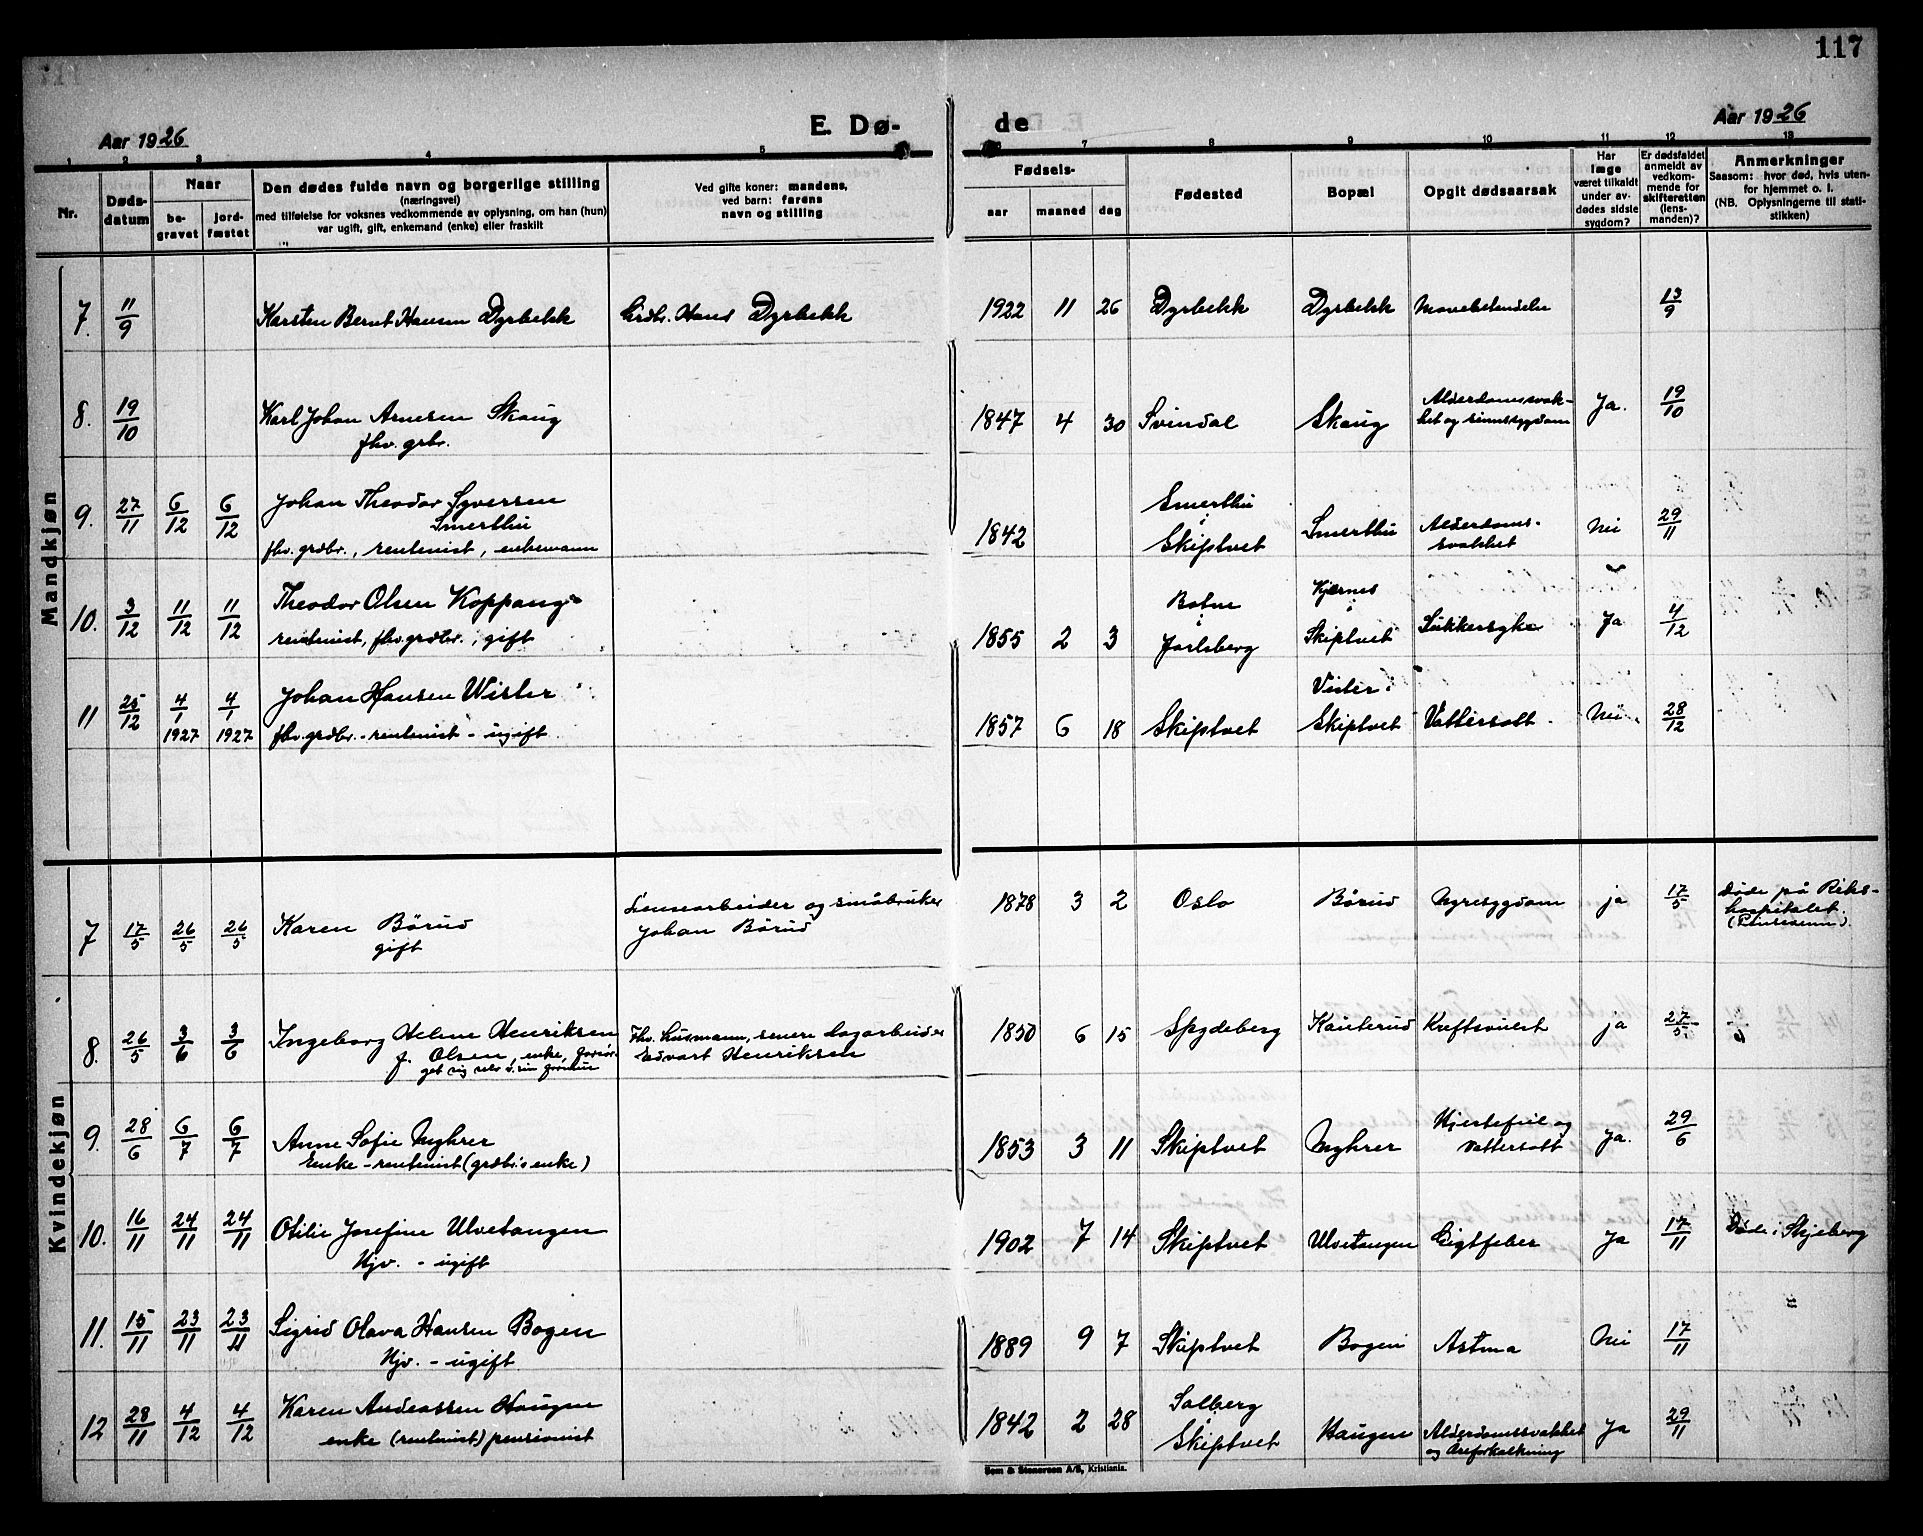 117
Aar 1926
E. Dø-
de
Aar 1926
1 2 3 4 5 6 7 8 9 10 11 12 13
Nr.
Døds-
datum
Naar
be-
gravet
jord-
fæstet
Den dødes fulde navn og borgerlige stilling
(næringsvei)
med tilføielse for voksnes vedkommende av oplysning, om han (hun)
var ugift, gift, enkemand (enke) eller fraskilt
Ved gifte koner: mandens,
ved barn: farens
navn og stilling
Fødsels-
aar maaned dag
Fødested
Bopæl
Opgit dødsaarsak
Har
læge
været tilkaldt
under av-
dødes sidste
sygdom?
Er dødsfaldet
anmeldt av
vedkom-
mende for
skifteretten
(lens-
manden)?
Anmerkninger
Saasom: hvor død, hvis uten-
for hjemmet o. l.
(NB. Oplysningerne til stati-
stikken)
Mandkjøn
7. 11/9 Karsten Bernt Hansen Dyrbekk Grdbr. Hans Dyrbekk 1922 11 26 Dyrbekk Dyrbekk Mavebetendelse 13/9
8. 19/10 Karl Johan Arnesen Skaug 1847 4 30 Svindal Skaug Alderdomssvak-
het og sinnssygdom Ja. 19/10
fhv. grbr.
9. 27/11 6/12 6/12 Johan Theodor Syversen
Smerthu
fhv. grdbr., rentenist, enkemann
1842 Smerthu
i
Skiptvet Smerthu Alderdoms-
svakhet Nei 29/11
10. 3/12 11/12 11/12 Theodor Olsen Koppang
rentenist, fhv. grdbr., gift
1855 2 3 Botne
Jarlsberg Kjærnes
i
Skiptvet Sukkersyke Ja 4/12
11 25/12 4/1 1927 4/1 1927 Johan Hansen Wister
fhv. grdbr. - rentenist - ugift
1857 6 18 Skiptvet Vister i
Skiptvet Vattersott Nei 28/12
Kvindekjøn
7 17/5 26/5 26/5 Karen Børud
gift
Lensearbeider og småbruker
Johan Børud
1878 3 2 Oslo Børud Nyresygdom ja 17/5 Døde på Riks-
hospitalet.
8. 26/5 3/6 3/6 Ingeborg Helene Henriksen
f. Olsen, enke, forsør-
get sig selv v. sin formue
Fhv. husmann, senere dagarbeider
Edvart Henriksen
1850 6 15 Spydeberg Kauterud Kreftsvulst ja 27/5
9. 28/6 6/7 6/7 Anne Sofie Nyhrer
Enke - rentenist (grdbr's enke)
1853 3 11 Skiptvet Nyhrer Hjertefeil og
vattersott Ja. 29/6
10. 16/11 24/11 24/11 Otilie Josefine Ulvetangen
Hjv. - ugift
1902 7 14 Skiptvet Ulvetangen Gigtfeber Ja 17/11 Døde i Skjeberg
11. 15/11 23/11 23/11 Sigrid Olava Hansen Bogen
Hjv. - ugift
1889 9 7 Skiptvet Bogen Astma Nei 17/11
12 28/11 4/12 4/12 Karen Andreassen Haugen
enke (rentenist) pensionist
1842 2 28 Solberg
i
Skiptvet Haugen Alderdomssvakhet
og Åreforkalkning Ja 29/11
Sem & Stenersen A/S, Kristiania.